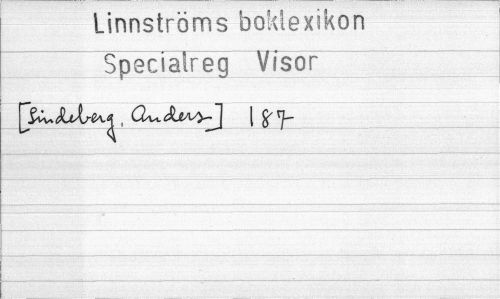 Linnströms boklexikon
Specialreg Visor
[Lindeberg, Anders] 187